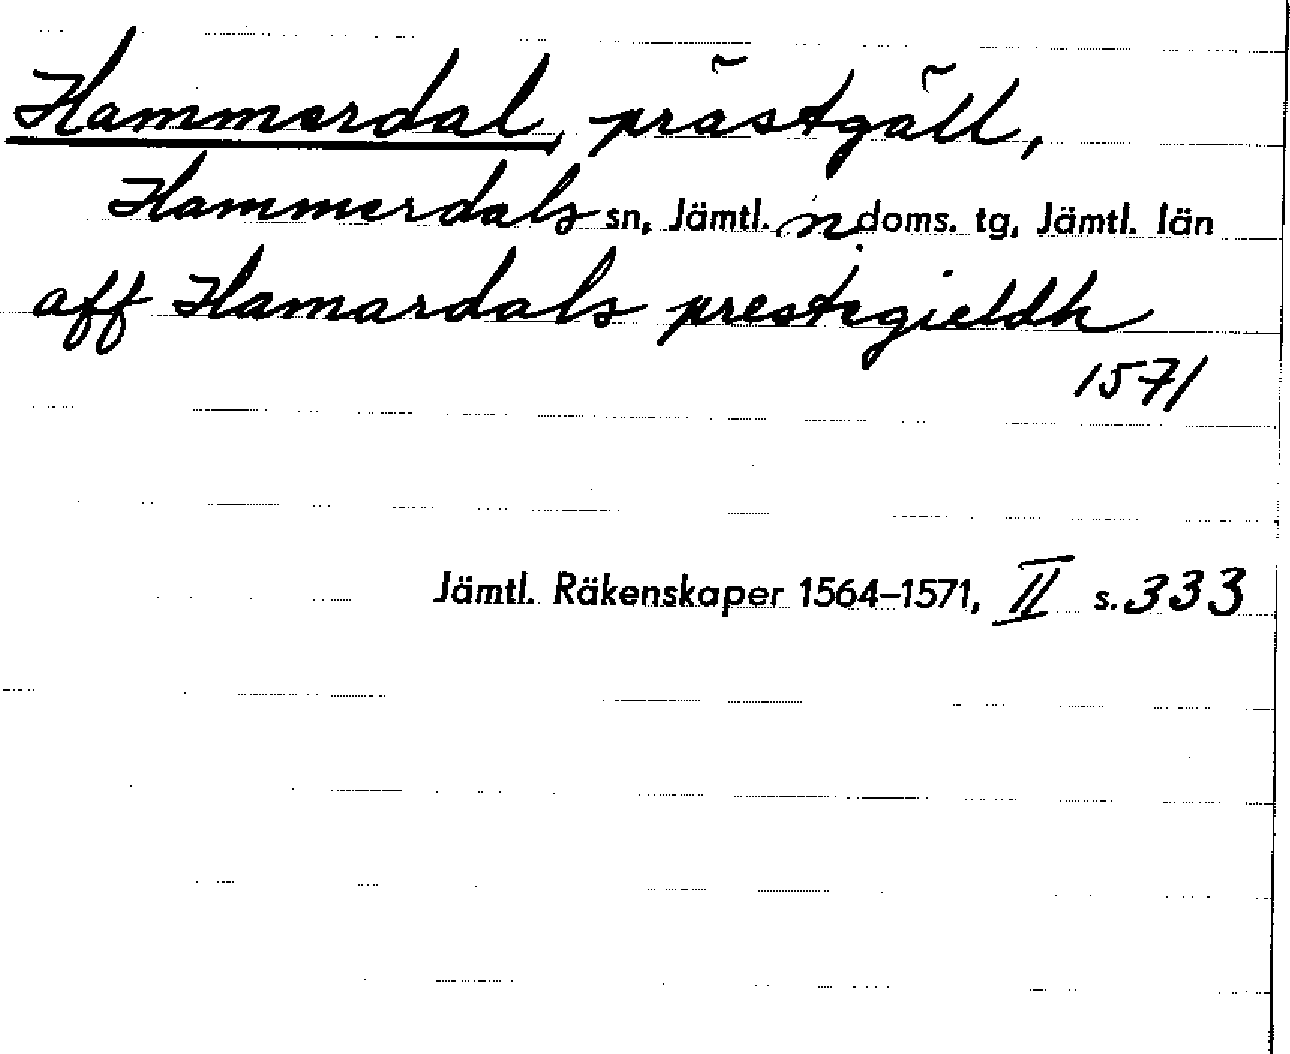 Hammerdal, prästgäll,
Hammerdals sn, Jämtl. n doms. tg, Jämtl. län
aff Hamardals prestegieldh
1571
Jämtl. Räkenskaper 1564–1571, II s. 333